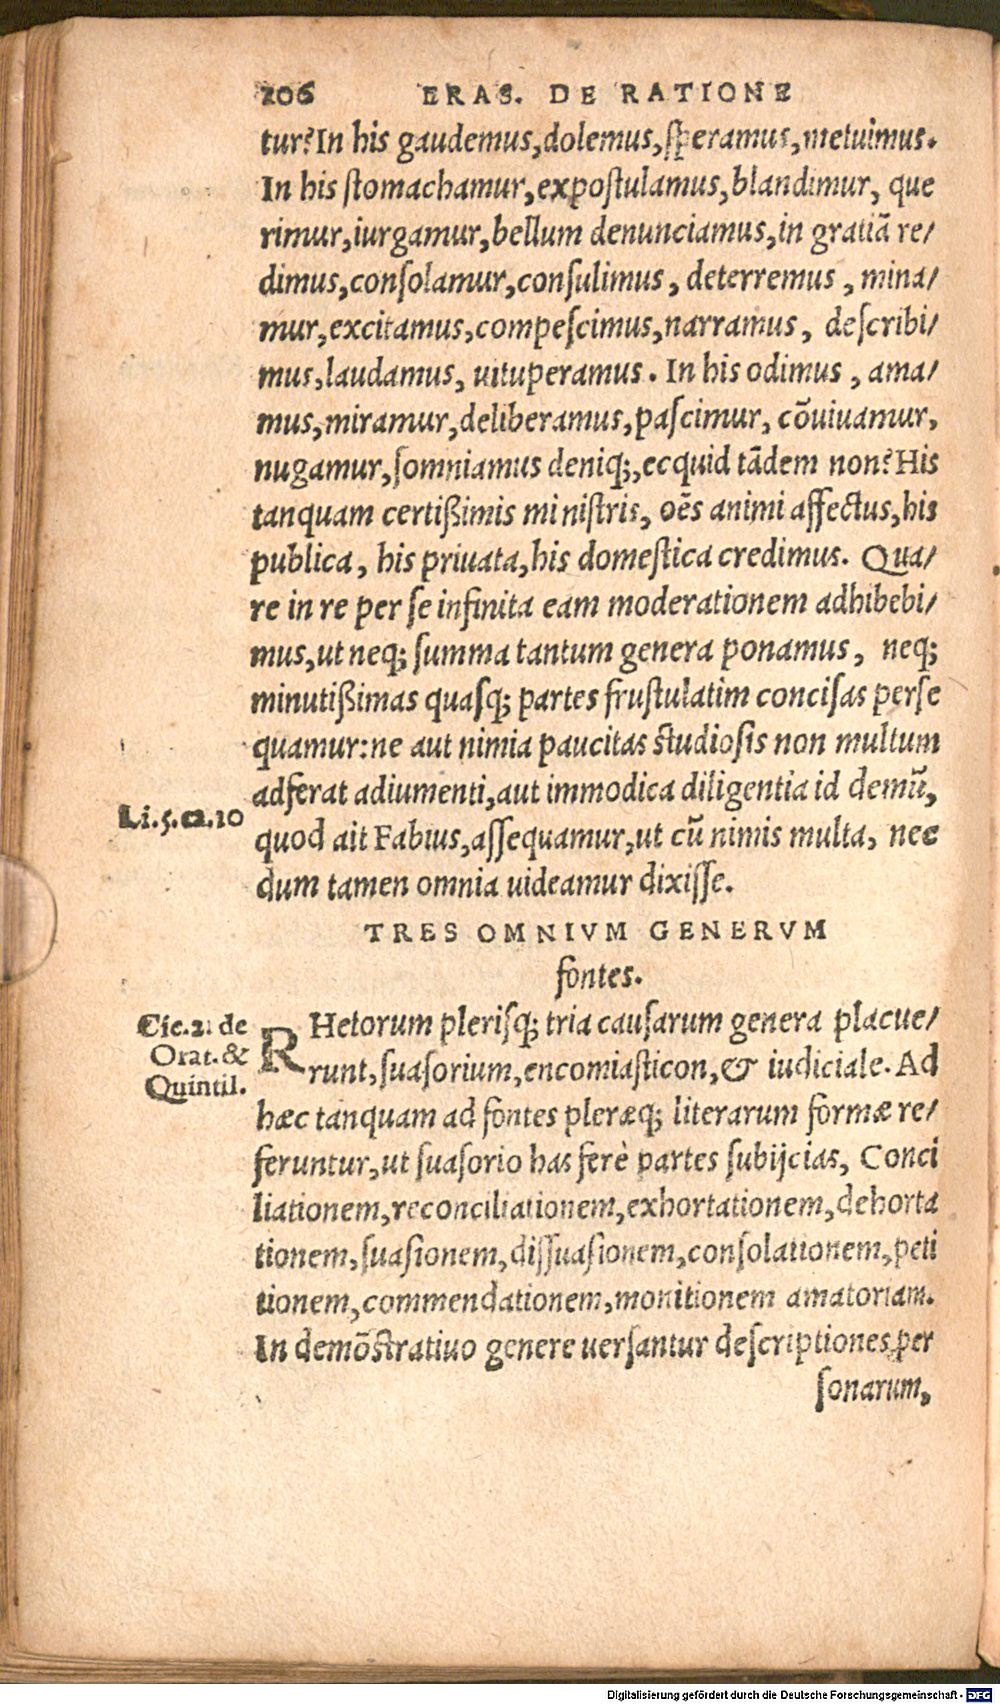 206 ERAS. DE RATIONE
tur? In his gaudemus, dolemus, speramus, metuimus.
In his stomachamur, expostulamus, blandimur, que
rimur, iurgamur, bellum denunciamus, in gratiã re/
dimus, consolamur, consulimus, deterremus, mina/
mur, excitamus, compescimus, narramus, describi/
mus, laudamus, uituperamus. In his odimus, ama/
mus, miramur, deliberamus, pascimur, cõuiuamur,
nugamur, somniamus deniq;, ecquid tãdem non? His
tanquam certißimis ministris, oẽs animi affectus, his
publica, his priuata, his domestica credimus. Qua/
re in re per se infinita eam moderationem adhibebi/
mus, ut neq; summa tantum genera ponamus, neq;
minutißimas quasq; partes frustulatim concisas perse
quamur: ne aut nimia paucitas studiosis non multum
adferat adiumenti, aut immodica diligentia id demũ,
Li.5.c2.10
quod ait Fabius, assequamur, ut cũ nimis multa, nec
dum tamen omnia uideamur dixisse.
TRES OMNIVM GENERVM
fontes.
Cic.2. de
Orat. &
Quintil.
RHetorum plerisq; tria causarum genera placue/
runt, suasorium, encomiasticon, & iudiciale. Ad
hæc tanquam ad fontes pleræq; literarum formæ re/
feruntur, ut suasorio has ferè partes subijcias, Conci
liationem, reconciliationem, exhortationem, dehorta
tionem, suasionem, dissuasionem, consolationem, peti
tionem, commendationem, monitionem amatoriam.
In demõstratiuo genere uersantur descriptiones per
sonarum,
Digitalisierung gefördert durch die Deutsche Forschungsgemeinschaft - DFG